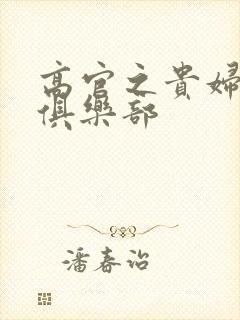 高官之貴婦
俱樂部
潘春治